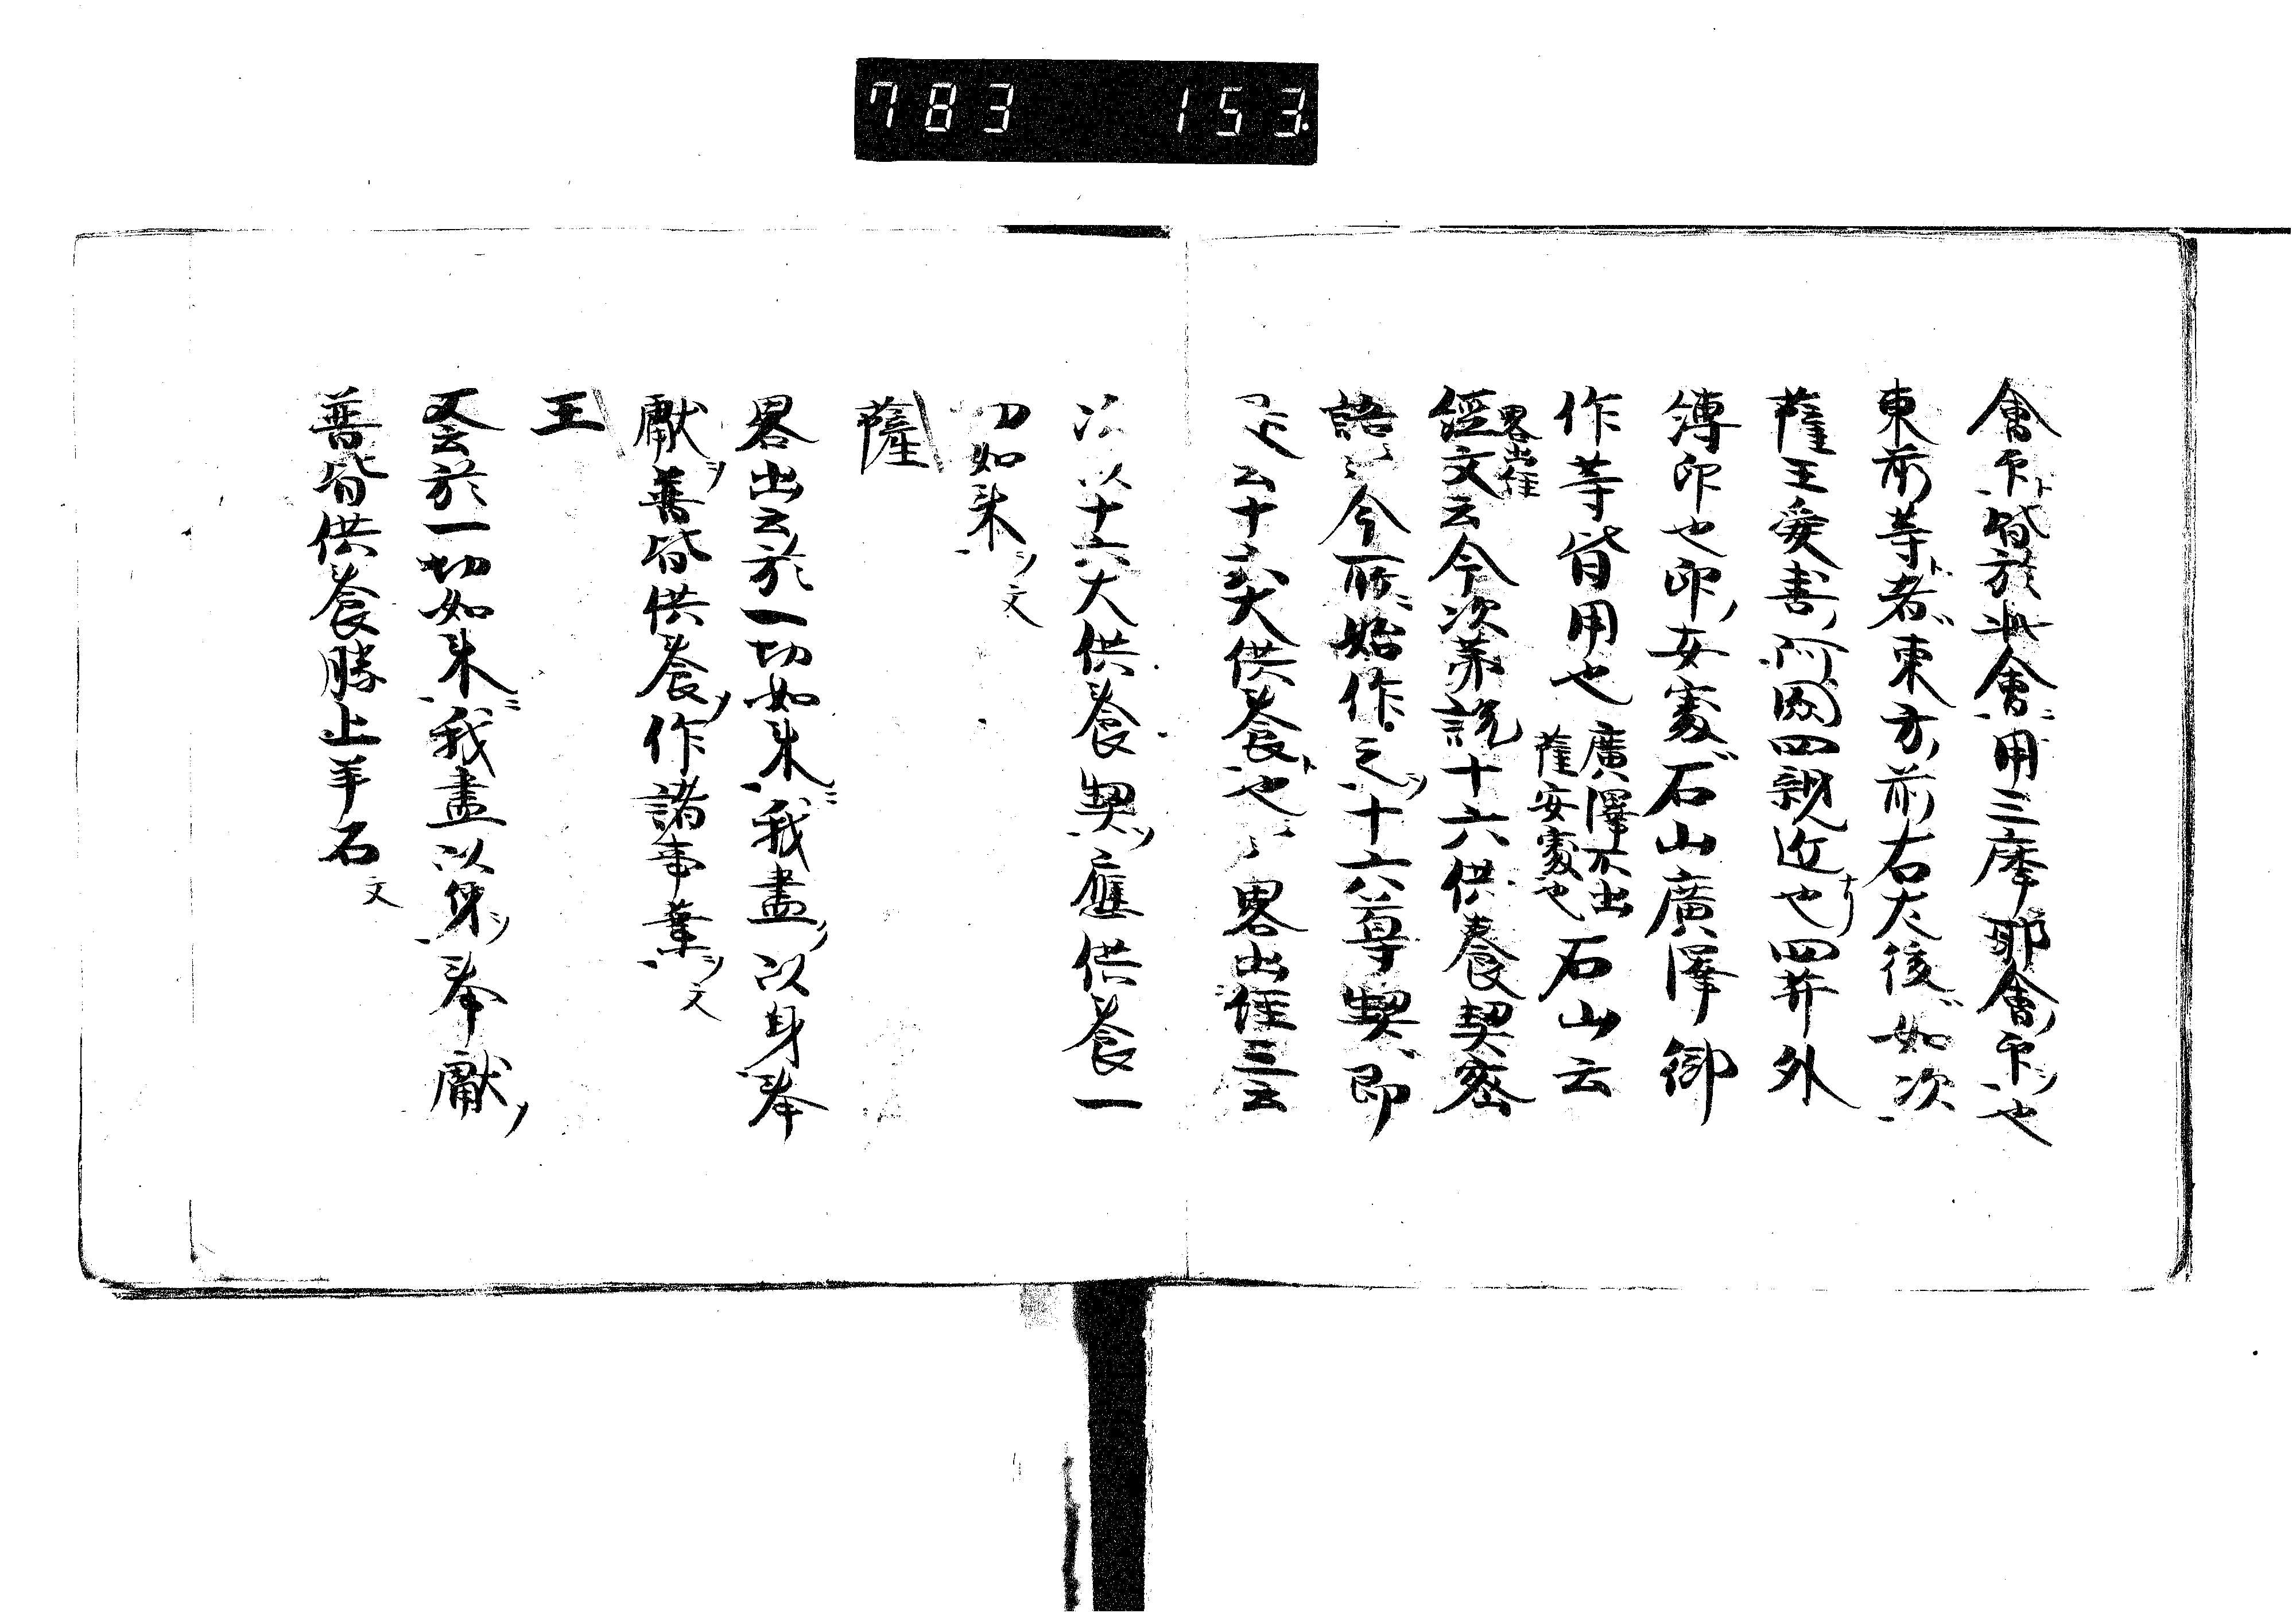 783 153
會印皆於此會用三摩耶會印也
東前等者東方前右左後如次
薩王愛喜阿閦四親近也四并外
縛印也印安處石山廣澤御
作等皆用也 廣澤不出
薩安處也 石山云
畧出経
経文云今次第説十六供養契密
語 今所始作之十六尊契即
是云十六大供養也 畧出経三云
次以十六大供養契應供養一
切如来文
薩
畧出云於一切如来我盡以身奉
獻普皆供養作諸事業文
王
又云於一切如来我盡以身奉獻
普皆供養勝上羊石文